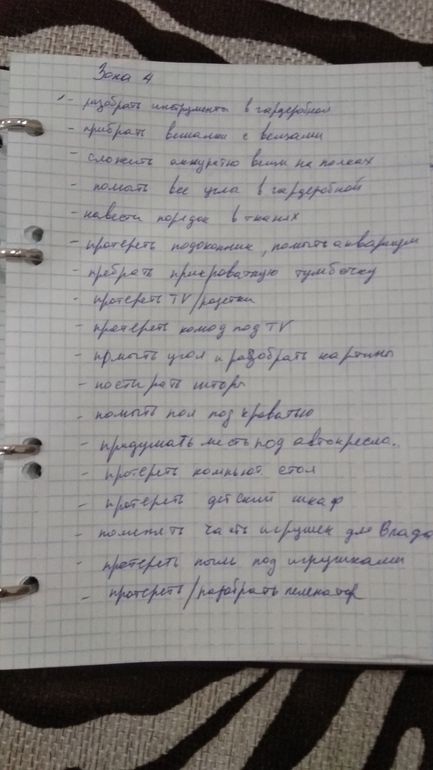 Зона 4
- разобрать инструменты в гардеробной
- прибрать вешалки с вещами
- сложить аккуратно вещи на полках
- помыть все угла в гардеробной
- навести порядок в тканях
- протереть подоконник, помыть аквариум
- пребрать прикроватную тумбочку
- протереть TV/розетки
- протереть комод под TV
- помыть угол и разобрать картины
- постирать шторы
- помыть пол под кроватью
- придумать месть под автокресла.
- протереть компьют стол
- протереть детский шкаф
- поменять часть игрушек для Влада
- протереть пыль под игрушками
- протереть/разобрать пеленатор